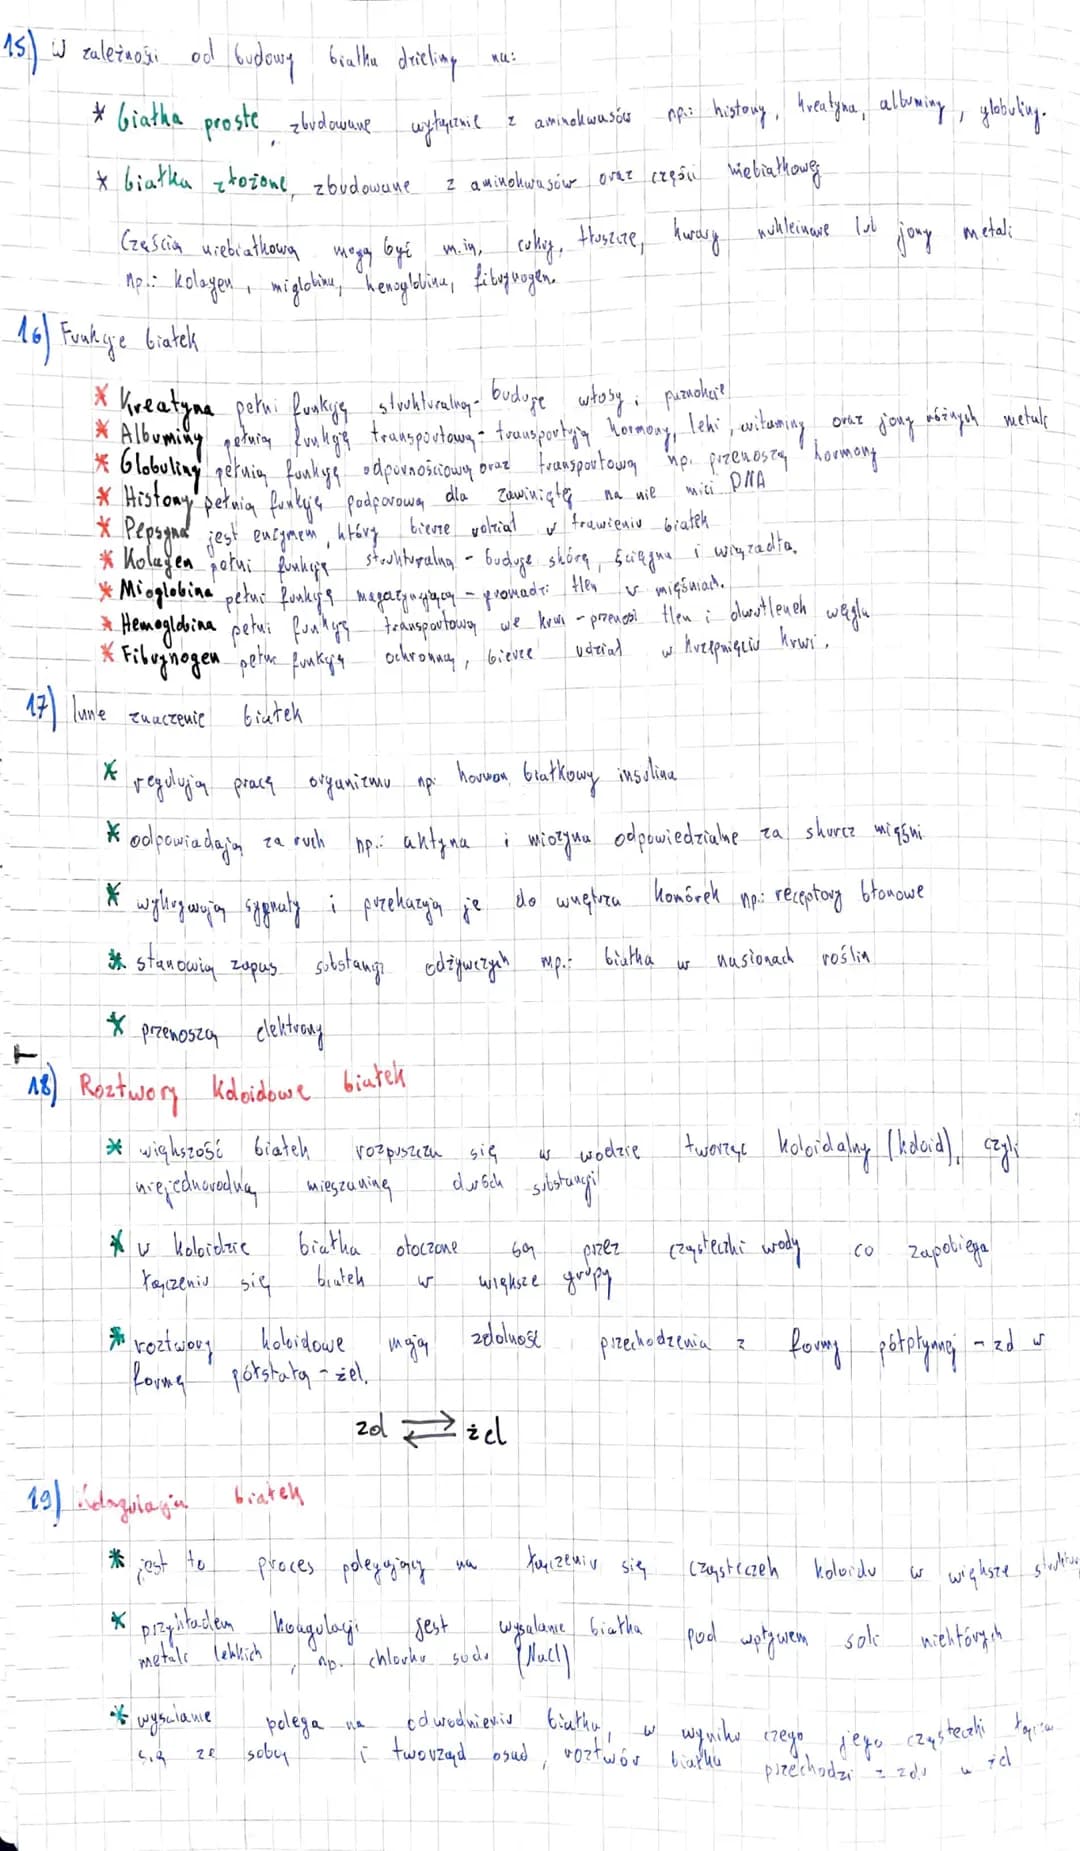 15) W zależności od budowy białka dzielimy na:
* białka proste, zbudowane wyłącznie z aminokwasów np.: histony, kreatyna, albuminy, globuliny.
* białka złożone, zbudowane z aminokwasów oraz części niebiałkowej
Częścią niebiałkową mogą być m.in. cukry, tłuszcze, kwasy nukleinowe lub jony metali
np.: kolagen, mioglobina, hemoglobina, fibrynogen.
16) Funkcje białek
* Kreatyna pełni funkcję strukturalną - buduje włosy i paznokcie
* Albuminy pełnią funkcję transportową - transportują hormony, leki, witaminy oraz jony różnych metali
* Globuliny pełnią funkcję odpornościową oraz transportową np. przenoszą hormony
* Histony pełnią funkcję podporową dla zawiniętej na nie nici DNA
* Pepsyna jest enzymem, który bierze udział w trawieniu białek
* Kolagen pełni funkcję strukturalną - buduje skórę, ścięgna i więzadła.
* Mioglobina pełni funkcję magazynującą - gromadzi tlen w mięśniach.
* Hemoglobina pełni funkcję transportową we krwi - przenosi tlen i dwutlenek węgla
* Fibrynogen pełni funkcję ochronną, bierze udział w krzepnięciu krwi.
17) Inne znaczenie białek
* regulują pracę organizmu np: hormon białkowy insulina
* odpowiadają za ruch np.: aktyna i miozyna odpowiedzialne za skurcz mięśni
* wykrywają sygnały i przekazują je do wnętrza komórek np.: receptory błonowe
* stanowią zapas substancji odżywczych np.: białka w nasionach roślin
* przenoszą elektrony
18) Roztwory koloidowe białek
* większość białek rozpuszcza się w wodzie tworząc koloidalny (koloid), czyli
niejednorodną mieszaninę dwóch substancji
* w koloidzie białka otoczone są przez cząsteczki wody co zapobiega
łączeniu się białek w większe grupy
* roztwory koloidowe mają zdolność przechodzenia z formy półpłynnej - zol w
formę półstałą - żel.
zol ⇄ żel
19) Koagulacja białek
* jest to proces polegający na łączeniu się cząsteczek koloidu w większe struktury
* przykładem koagulacji jest wysalanie białka pod wpływem soli niektórych
metali lekkich, np. chlorku sodu (NaCl)
* wysalanie polega na odwodnieniu białka, w wyniku czego jego cząsteczki łączą
się ze sobą i tworząc osad, roztwór białka przechodzi z zolu w żel